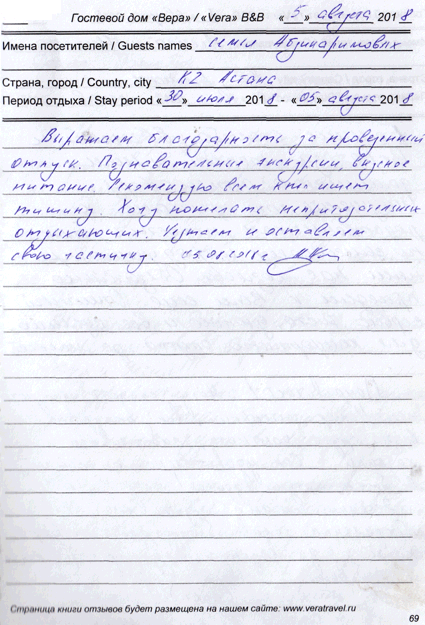 Гостевой дом «Вера» / «Vera» B&B « 5 » августа 2018
Имена посетителей / Guests names семья Абдикаримовых
Страна, город / Country, city KZ Астана
Период отдыха / Stay period «30» июля 2018 - «05» августа 2018
Выражаем благодарность за проведенный
отпуск. Познавательные экскурсии, вкусное
питание. Рекомендую всем кто ищет
тишину. Хочу пожелать непритязательных
отдыхающих. Уезжаем и оставляем
свою частичку. 05.08.2018 г
Страница книги отзывов будет размещена на нашем сайте: www.veratravel.ru
69